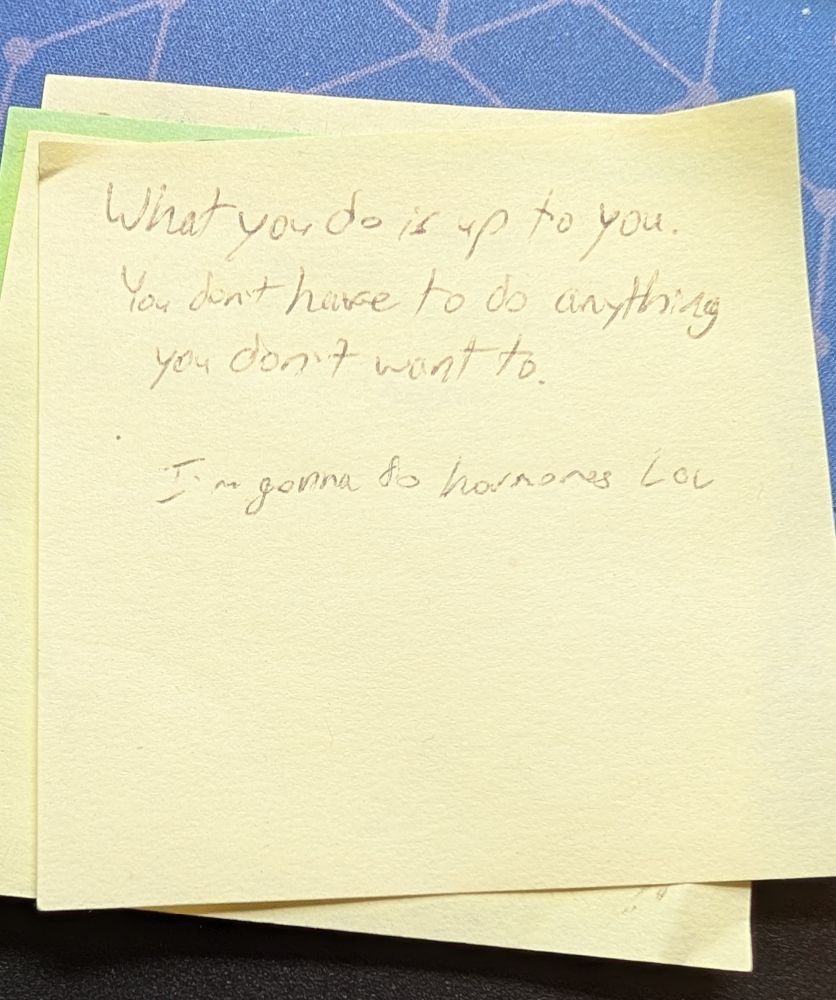 What you do is up to you.
You don't have to do anything
you don't want to.
I'm gonna do hormones LOL